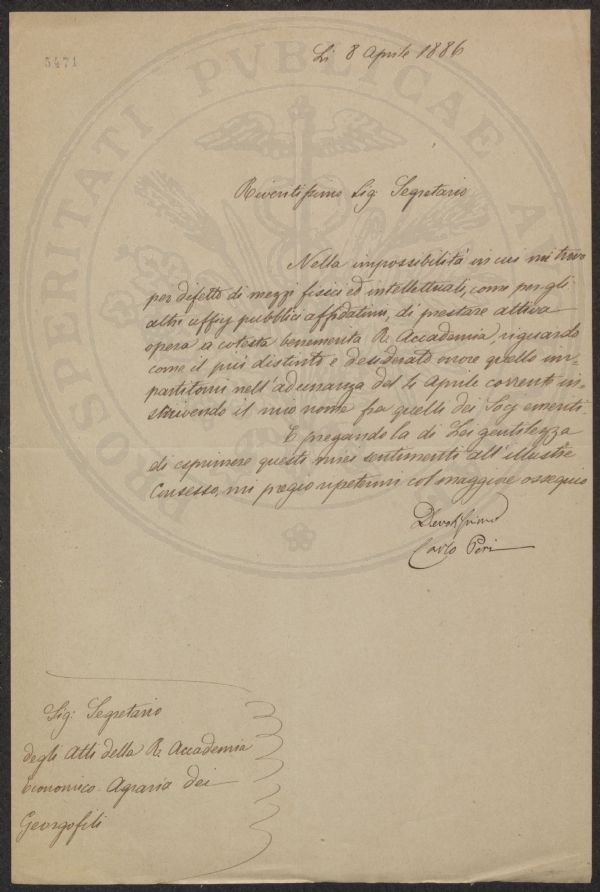 5471
Li 8 Aprile 1886
Reveritissimo Sig. Segretario
Nella impossibilità in cui mi trovo
per difetto di mezzi fisici ed intellettuali, come per gli
altri uffizj pubblici affidatimi, di prestare attiva
opera a cotesta benemerita R. Accademia, riguardo
come il più distinto e desiderato onore quello im-
partitomi nell'adunanza del 4 Aprile corrente in-
scrivendo il mio nome fra quelli dei Socj emeriti.
E pregandola di Lei gentilezza
di esprimere questi miei sentimenti all'illustre
Consesso, mi pregio ripetermi col maggiore ossequio
Devotissimo
Carlo Peri
Sig. Segretario
degli Atti della R. Accademia
Economico-Agraria dei
Georgofili
PROSPERITATI PVBLICAE A